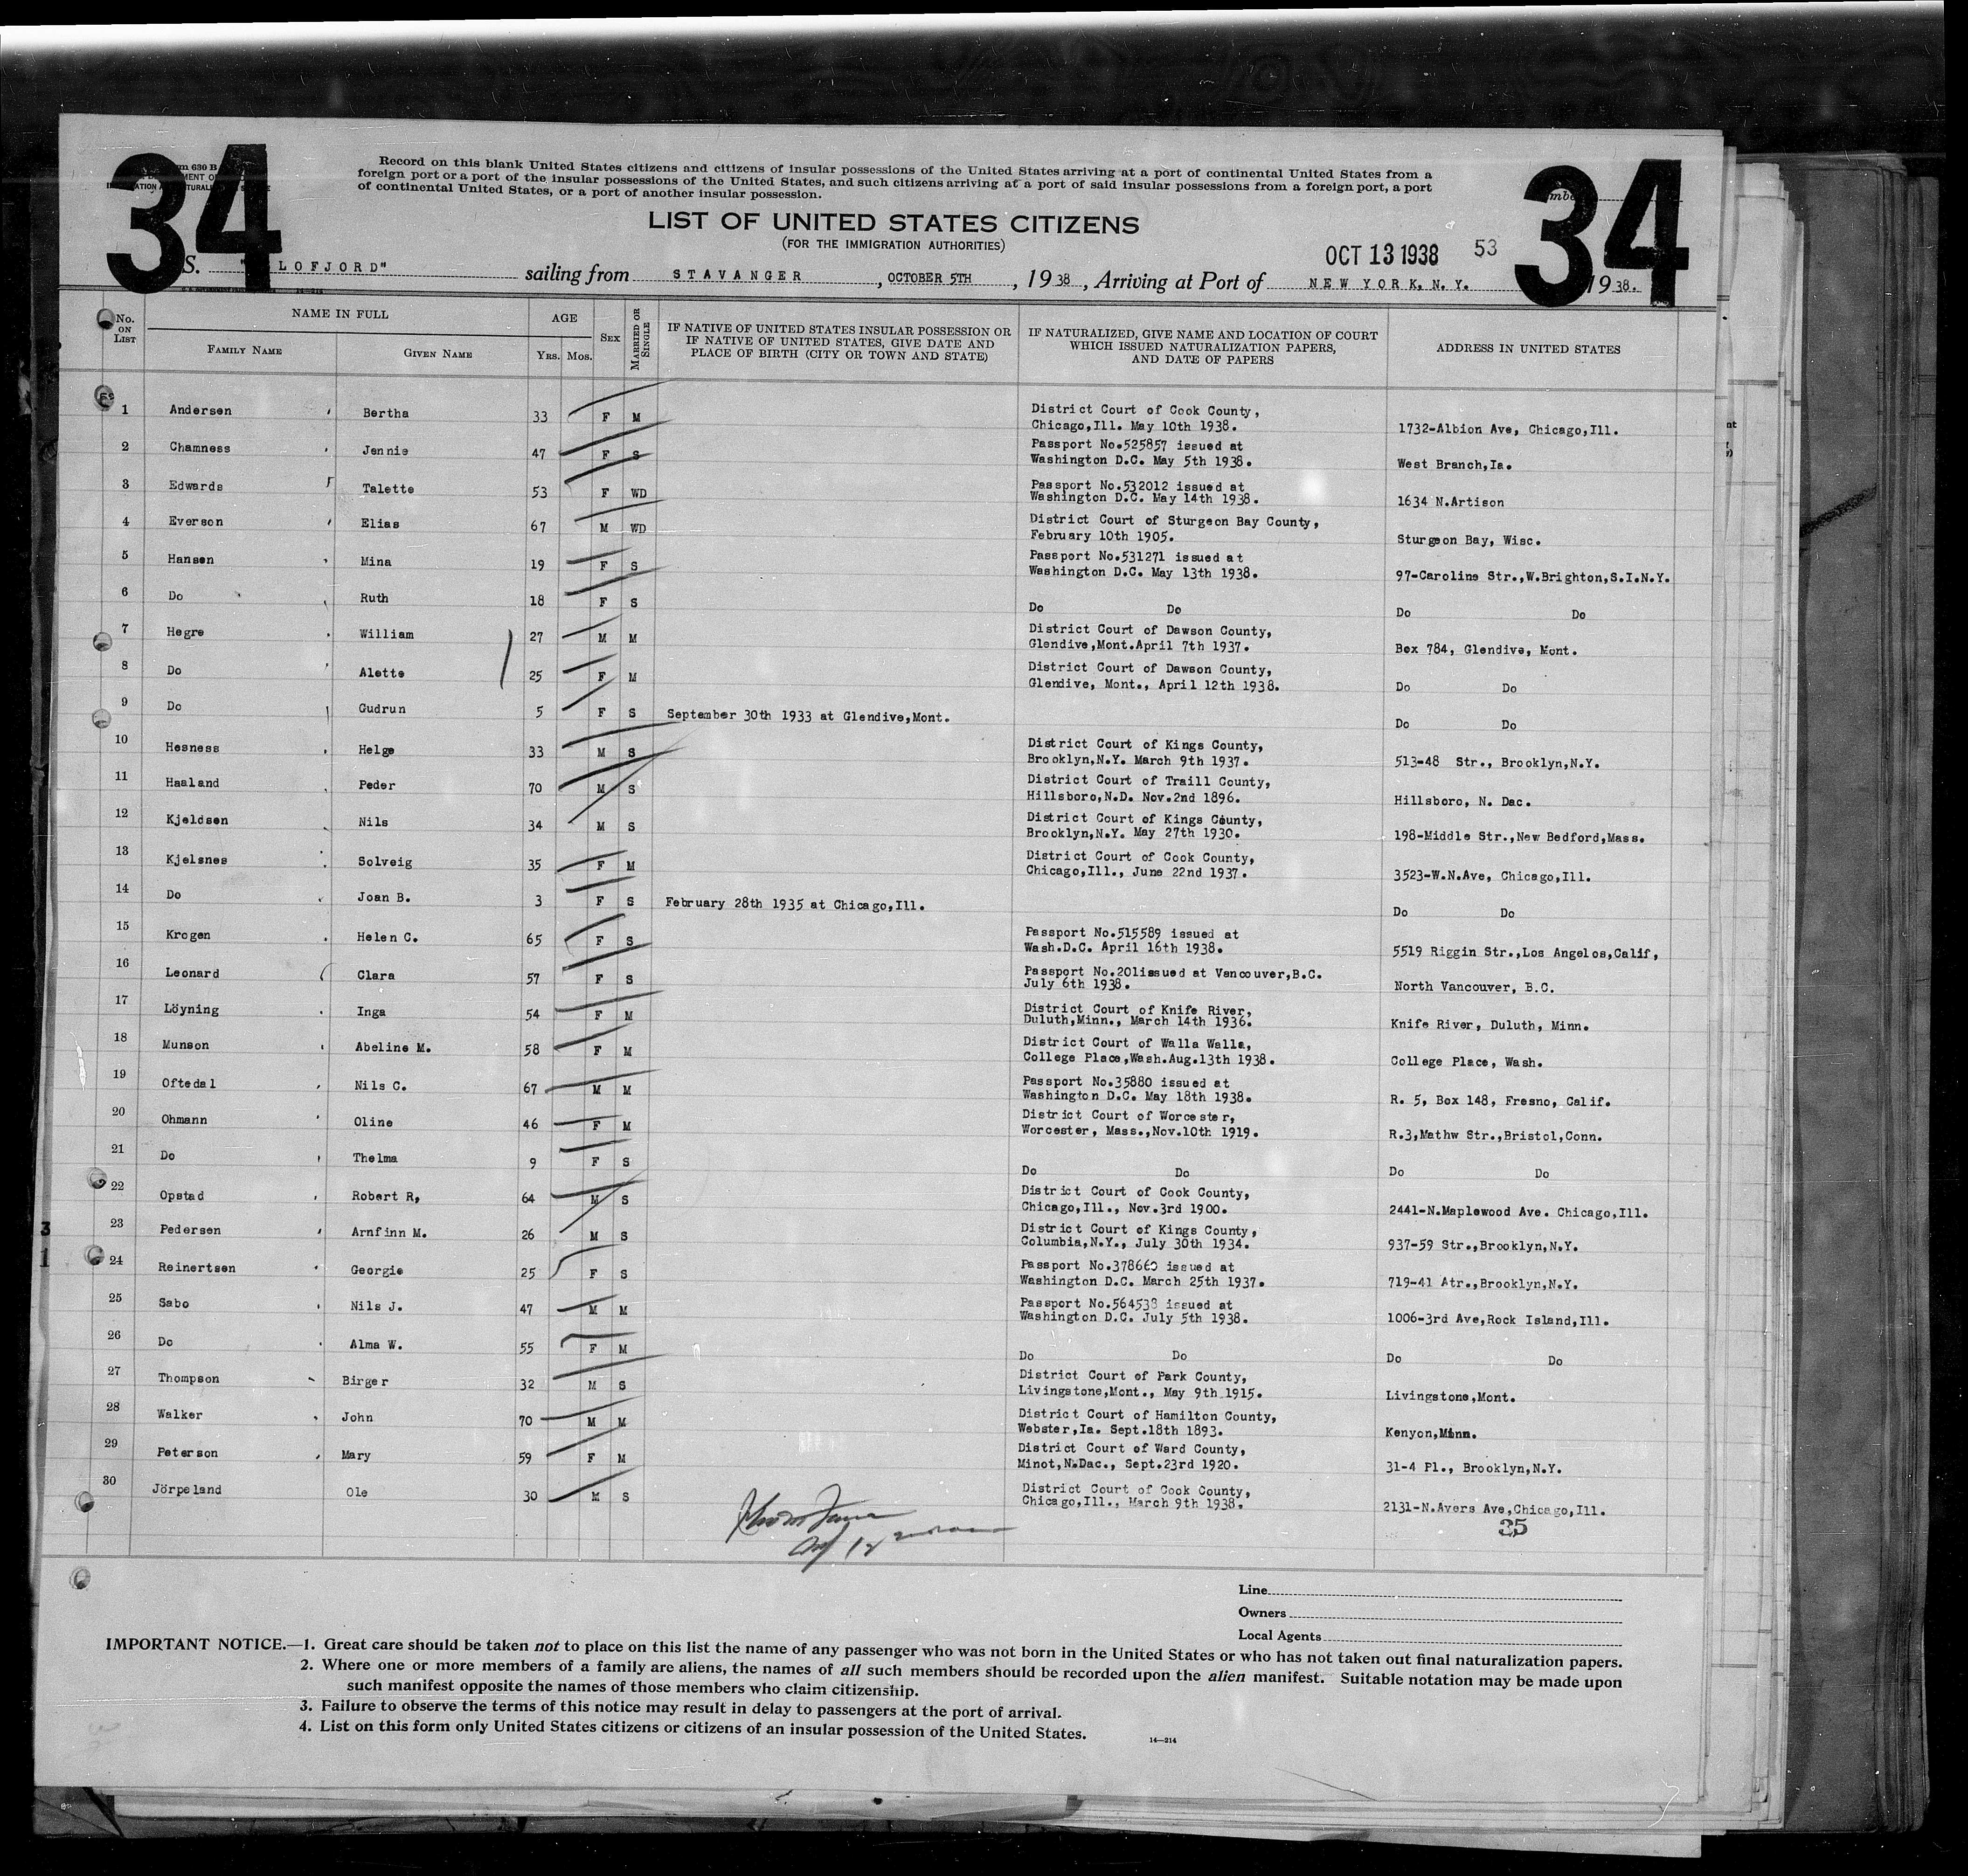 34
34
Record on this blank United States citizens and citizens of insular possessions of the United States arriving at a port of continental United States from a
foreign port or a port of the insular possessions of the United States, and such citizens arriving at a port of said insular possessions from a foreign port, a port
of continental United States, or a port of another insular possession.
LIST OF UNITED STATES CITIZENS
(FOR THE IMMIGRATION AUTHORITIES)
OCT 13 1938 53
S. LOFJORD" sailing from STAVANGER, OCTOBER 5TH, 1938, Arriving at Port of NEW YORK, N.Y. 1938.
No. ON LIST NAME IN FULL AGE SEX MARRIED OR SINGLE IF NATIVE OF UNITED STATES INSULAR POSSESSION OR IF NATIVE OF UNITED STATES, GIVE DATE AND PLACE OF BIRTH (CITY OR TOWN AND STATE) IF NATURALIZED, GIVE NAME AND LOCATION OF COURT WHICH ISSUED NATURALIZATION PAPERS, AND DATE OF PAPERS ADDRESS IN UNITED STATES
FAMILY NAME GIVEN NAME YRS. MOS.
1 Andersen Bertha 33 F M District Court of Cook County,
Chicago,Ill. May 10th 1938. 1732-Albion Ave, Chicago,Ill.
2 Chamness Jennie 47 F S Passport No.525857 issued at
Washington D.C. May 5th 1938. West Branch,Ia.
3 Edwards Talette 53 F WD Passport No.532012 issued at
Washington D.C. May 14th 1938. 1634 N.Artison
4 Everson Elias 67 M WD District Court of Sturgeon Bay County,
February 10th 1905. Sturgeon Bay, Wisc.
5 Hansen Mina 19 F S Passport No.531271 issued at
Washington D.C. May 13th 1938. 97-Caroline Str.,W.Brighton,S.I.N.Y.
6 Do Ruth 18 F S Do Do Do Do
7 Hegre William 27 M M District Court of Dawson County,
Glendive,Mont.April 7th 1937. Box 784, Glendive, Mont.
8 Do Alette 25 F M District Court of Dawson County,
Glendive, Mont., April 12th 1938. Do Do
9 Do Gudrun 5 F S September 30th 1933 at Glendive,Mont. Do Do
10 Hesness Helge 33 M S District Court of Kings County,
Brooklyn,N.Y. March 9th 1937. 513-48 Str., Brooklyn,N.Y.
11 Haaland Peder 70 M S District Court of Traill County,
Hillsboro,N.D. Nov.2nd 1896. Hillsboro, N. Dac.
12 Kjeldsen Nils 34 M S District Court of Kings County,
Brooklyn,N.Y. May 27th 1930. 198-Middle Str.,New Bedford,Mass.
13 Kjelsnes Solveig 35 F M District Court of Cook County,
Chicago,Ill., June 22nd 1937. 3523-W.N.Ave, Chicago,Ill.
14 Do Joan B. 3 F S February 28th 1935 at Chicago,Ill. Do Do
15 Krogen Helen C. 65 F S Passport No.515589 issued at
Wash.D.C. April 16th 1938. 5519 Riggin Str.,Los Angelos,Calif,
16 Leonard Clara 57 F S Passport No.201issued at Vancouver,B.C.
July 6th 1938. North Vancouver, B.C.
17 Löyning Inga 54 F M District Court of Knife River,
Duluth,Minn., March 14th 1936. Knife River, Duluth, Minn.
18 Munson Abeline M. 58 F M District Court of Walla Walla,
College Place,Wash.Aug.13th 1938. College Place, Wash.
19 Oftedal Nils C. 67 M M Passport No.35880 issued at
Washington D.C. May 18th 1938. R. 5, Box 148, Fresno, Calif.
20 Ohmann Oline 46 F M District Court of Worcester,
Worcester, Mass.,Nov.10th 1919. R.3,Mathw Str.,Bristol,Conn.
21 Do Thelma 9 F S Do Do Do Do
22 Opstad Robert R, 64 M S District Court of Cook County,
Chicago,Ill., Nov.3rd 1900. 2441-N.Maplewood Ave. Chicago,Ill.
23 Pedersen Arnfinn M. 26 M S District Court of Kings County,
Columbia,N.Y., July 30th 1934. 937-59 Str.,Brooklyn,N.Y.
24 Reinertsen Georgie 25 F S Passport No.378660 issued at
Washington D.C. March 25th 1937. 719-41 Atr.,Brooklyn,N.Y.
25 Sabo Nils J. 47 M M Passport No.564538 issued at
Washington D.C. July 5th 1938. 1006-3rd Ave,Rock Island,Ill.
26 Do Alma W. 55 F M Do Do Do Do
27 Thompson Birger 32 M S District Court of Park County,
Livingstone,Mont., May 9th 1915. Livingstone,Mont.
28 Walker John 70 M M District Court of Hamilton County,
Webster,Ia. Sept.18th 1893. Kenyon,Minn.
29 Peterson Mary 59 F M District Court of Ward County,
Minot,N.Dac., Sept.23rd 1920. 31-4 Pl., Brooklyn,N.Y.
30 Jörpeland Ole 30 M S District Court of Cook County,
Chicago,Ill., March 9th 1938. 2131-N.Avers Ave,Chicago,Ill.
35
Line
Owners
Local Agents
IMPORTANT NOTICE.—1. Great care should be taken not to place on this list the name of any passenger who was not born in the United States or who has not taken out final naturalization papers.
2. Where one or more members of a family are aliens, the names of all such members should be recorded upon the alien manifest. Suitable notation may be made upon
such manifest opposite the names of those members who claim citizenship.
3. Failure to observe the terms of this notice may result in delay to passengers at the port of arrival.
4. List on this form only United States citizens or citizens of an insular possession of the United States.
14—214